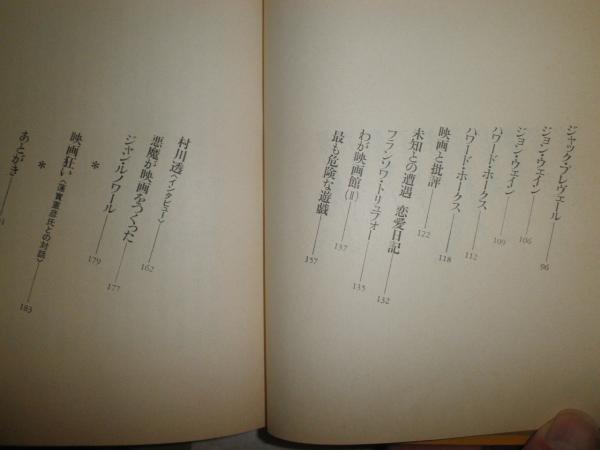 ジャック・プレヴェール 96
ジョン・ウェイン 106
ジョン・ウェイン 109
ハワード・ホークス 112
ハワード・ホークス 118
映画と批評 122
未知との遭遇 恋愛日記 132
フランソワ・トリュフォー 135
わが映画館(Ⅱ) 137
最も危険な遊戯 157
村川透〈インタビュー〉 162
悪魔が映画をつくった 177
ジャン・ルノワール 179
*
映画狂い〈蓮實重彦氏との対話〉 183
*
あとがき